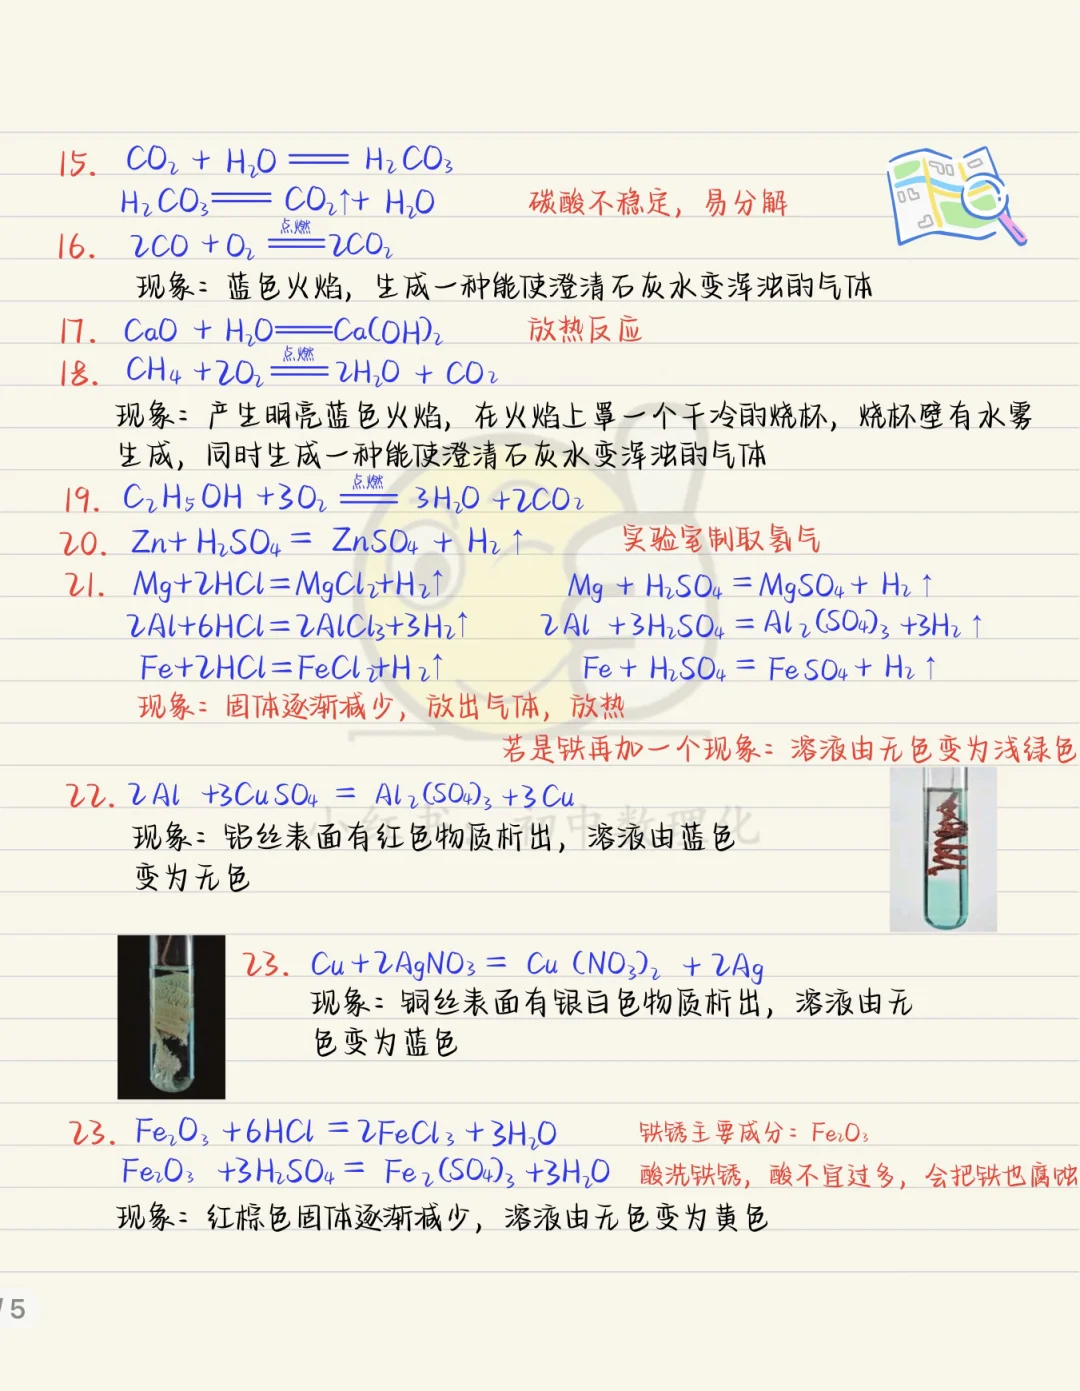 15. CO₂ + H₂O == H₂CO₃
H₂CO₃ == CO₂↑+ H₂O 碳酸不稳定，易分解
点燃
16. 2CO + O₂ == 2CO₂
现象：蓝色火焰，生成一种能使澄清石灰水变浑浊的气体
17. CaO + H₂O == Ca(OH)₂ 放热反应
点燃
18. CH₄ + 2O₂ == 2H₂O + CO₂
现象：产生明亮蓝色火焰，在火焰上罩一个干冷的烧杯，烧杯壁有水雾
生成，同时生成一种能使澄清石灰水变浑浊的气体
点燃
19. C₂H₅OH + 3O₂ == 3H₂O + 2CO₂
20. Zn + H₂SO₄ = ZnSO₄ + H₂↑ 实验室制取氢气
21. Mg+2HCl=MgCl₂+H₂↑ Mg + H₂SO₄ = MgSO₄ + H₂↑
2Al+6HCl=2AlCl₃+3H₂↑ 2Al + 3H₂SO₄ = Al₂(SO₄)₃ + 3H₂↑
Fe+2HCl=FeCl₂+H₂↑ Fe + H₂SO₄ = FeSO₄ + H₂↑
现象：固体逐渐减少，放出气体，放热
若是铁再加一个现象：溶液由无色变为浅绿色
22. 2Al + 3CuSO₄ = Al₂(SO₄)₃ + 3Cu
小红书：初中数理化
现象：铝丝表面有红色物质析出，溶液由蓝色
变为无色
23. Cu+2AgNO₃ = Cu(NO₃)₂ + 2Ag
现象：铜丝表面有银白色物质析出，溶液由无
色变为蓝色
23. Fe₂O₃ + 6HCl = 2FeCl₃ + 3H₂O 铁锈主要成分：Fe₂O₃
Fe₂O₃ + 3H₂SO₄ = Fe₂(SO₄)₃ + 3H₂O 酸洗铁锈，酸不宜过多，会把铁也腐蚀
现象：红棕色固体逐渐减少，溶液由无色变为黄色
/5